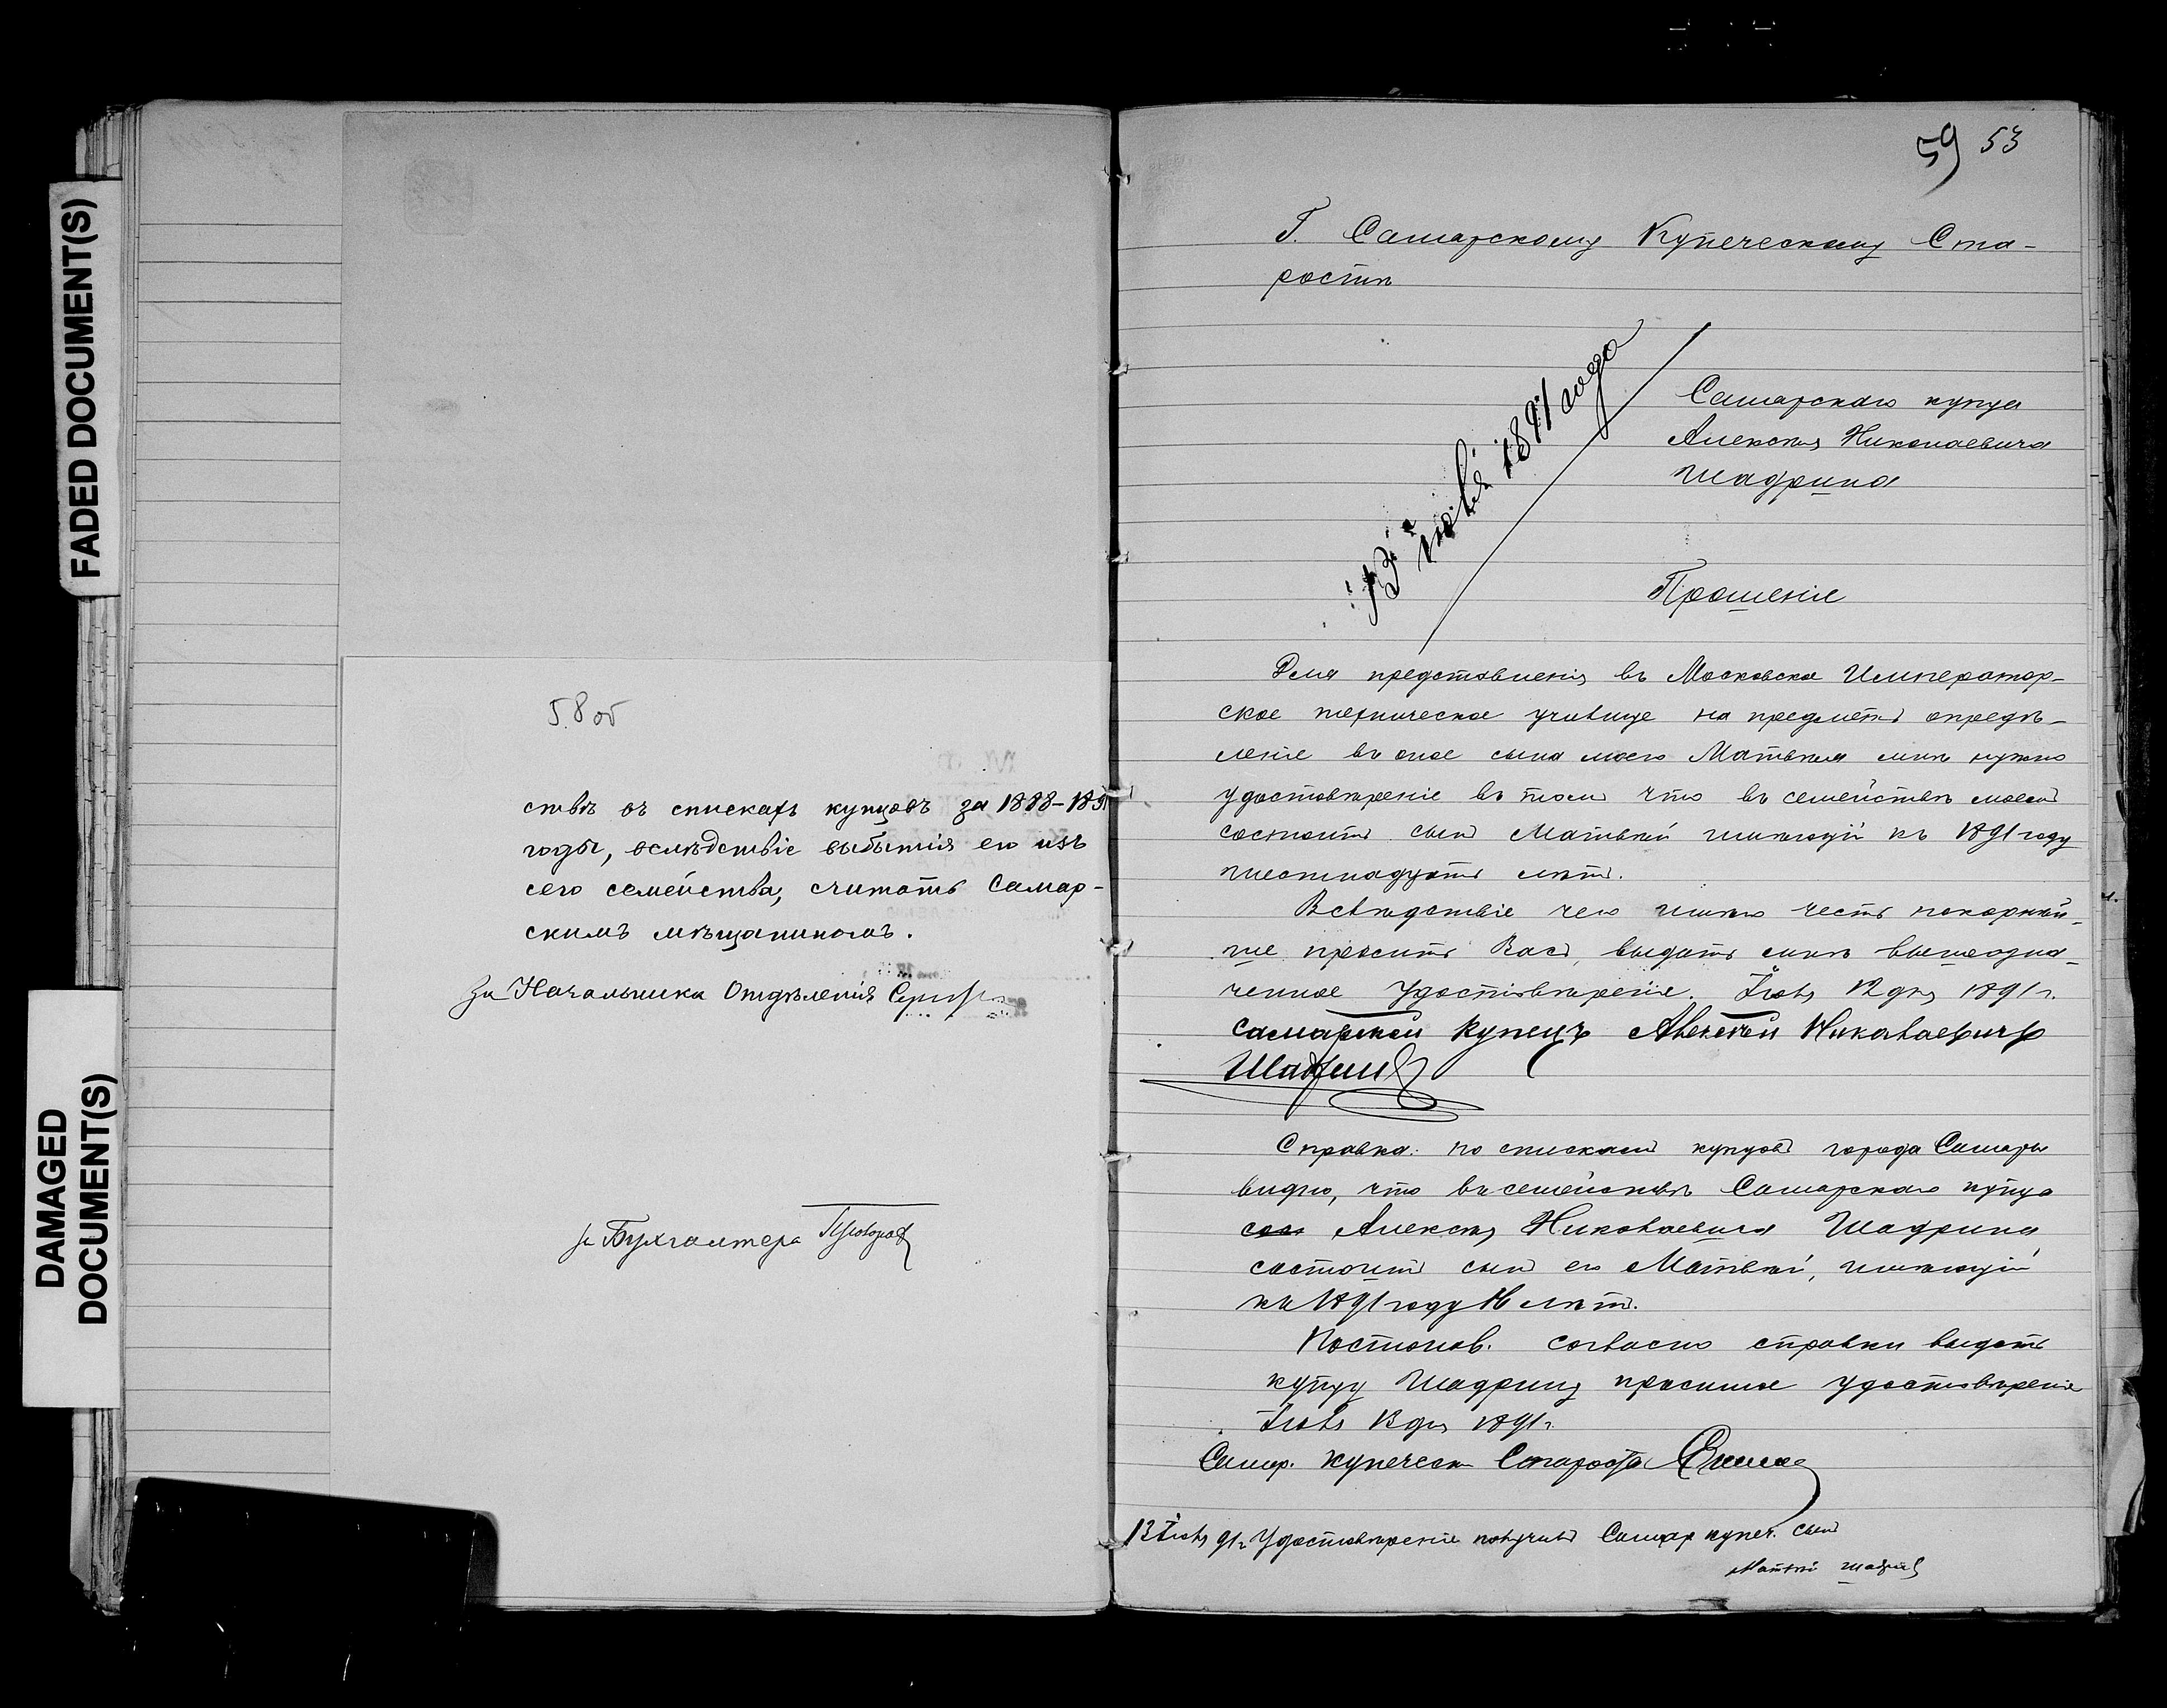 FADED DOCUMENT(S)
DAMAGED
DOCUMENT(S)
58 об
ствѣ въ спискахъ купцовъ за 1888-189
годы, вслѣдствіе выбытія его изъ
сего семейства, считать Самар-
скимъ мѣщаниномъ.
За Начальника Отдѣленія
за Бухгалтера
59 53
Г. Самарскому Купеческому Ста-
ростѣ
13 іюля 1891 года
Самарскаго купца
Алексѣя Николаевича
Шадрина
Прошеніе
Для представленія въ Московское Император-
ское техническое училище на предметъ опредѣ-
леніе въ оное сына моего Матвѣя мнѣ нужно
удостовѣреніе въ томъ что въ семействѣ моемъ
состоитъ сынъ Матвѣй имѣющій къ 1891 году
шестнадцать лѣтъ.
Вслѣдствіе чего имѣю честь покорнѣй-
ше просить Васъ, выдать мнѣ вышеозна-
ченное удостовѣреніе. Іюля 12 дня 1891 г.
Самарской Купецъ Алексѣй Николаевичъ
Шадринъ
Справка: по спискамъ купцовъ города Самары
видно, что въ семействѣ Самарскаго купца
Алексѣя Николаевича Шадрина
состоитъ сынъ его Матвѣй, имѣющій
къ 1891 году 16 лѣтъ.
Постанов. согласно справки выдать
купцу Шадрину просимое удостовѣреніе
Іюля 13 дня 1891 г.
Самар. купеческ Староста
13 Іюля 91 г Удостовѣреніе получилъ Самар купеч. сынъ
Матвѣй Шадринъ